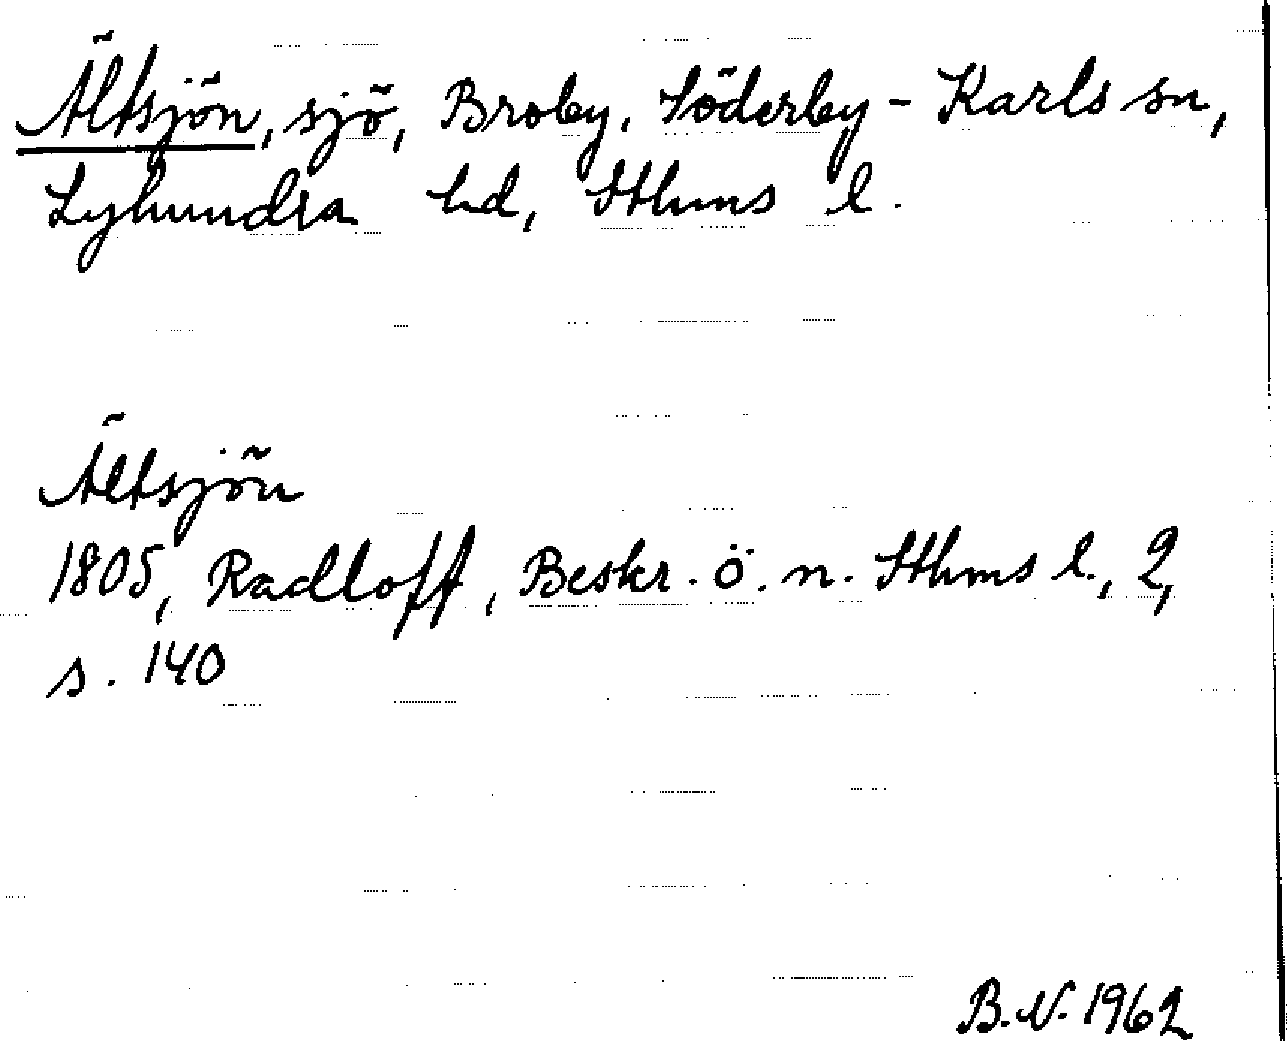 Ältsjön, sjö, Broby, Söderby-Karls sn,
Lyhundra hd, Sthms l.
Ältsjön
1805, Radloff, Beskr. ö. n. Sthms l., 2,
s. 140
B.N. 1962